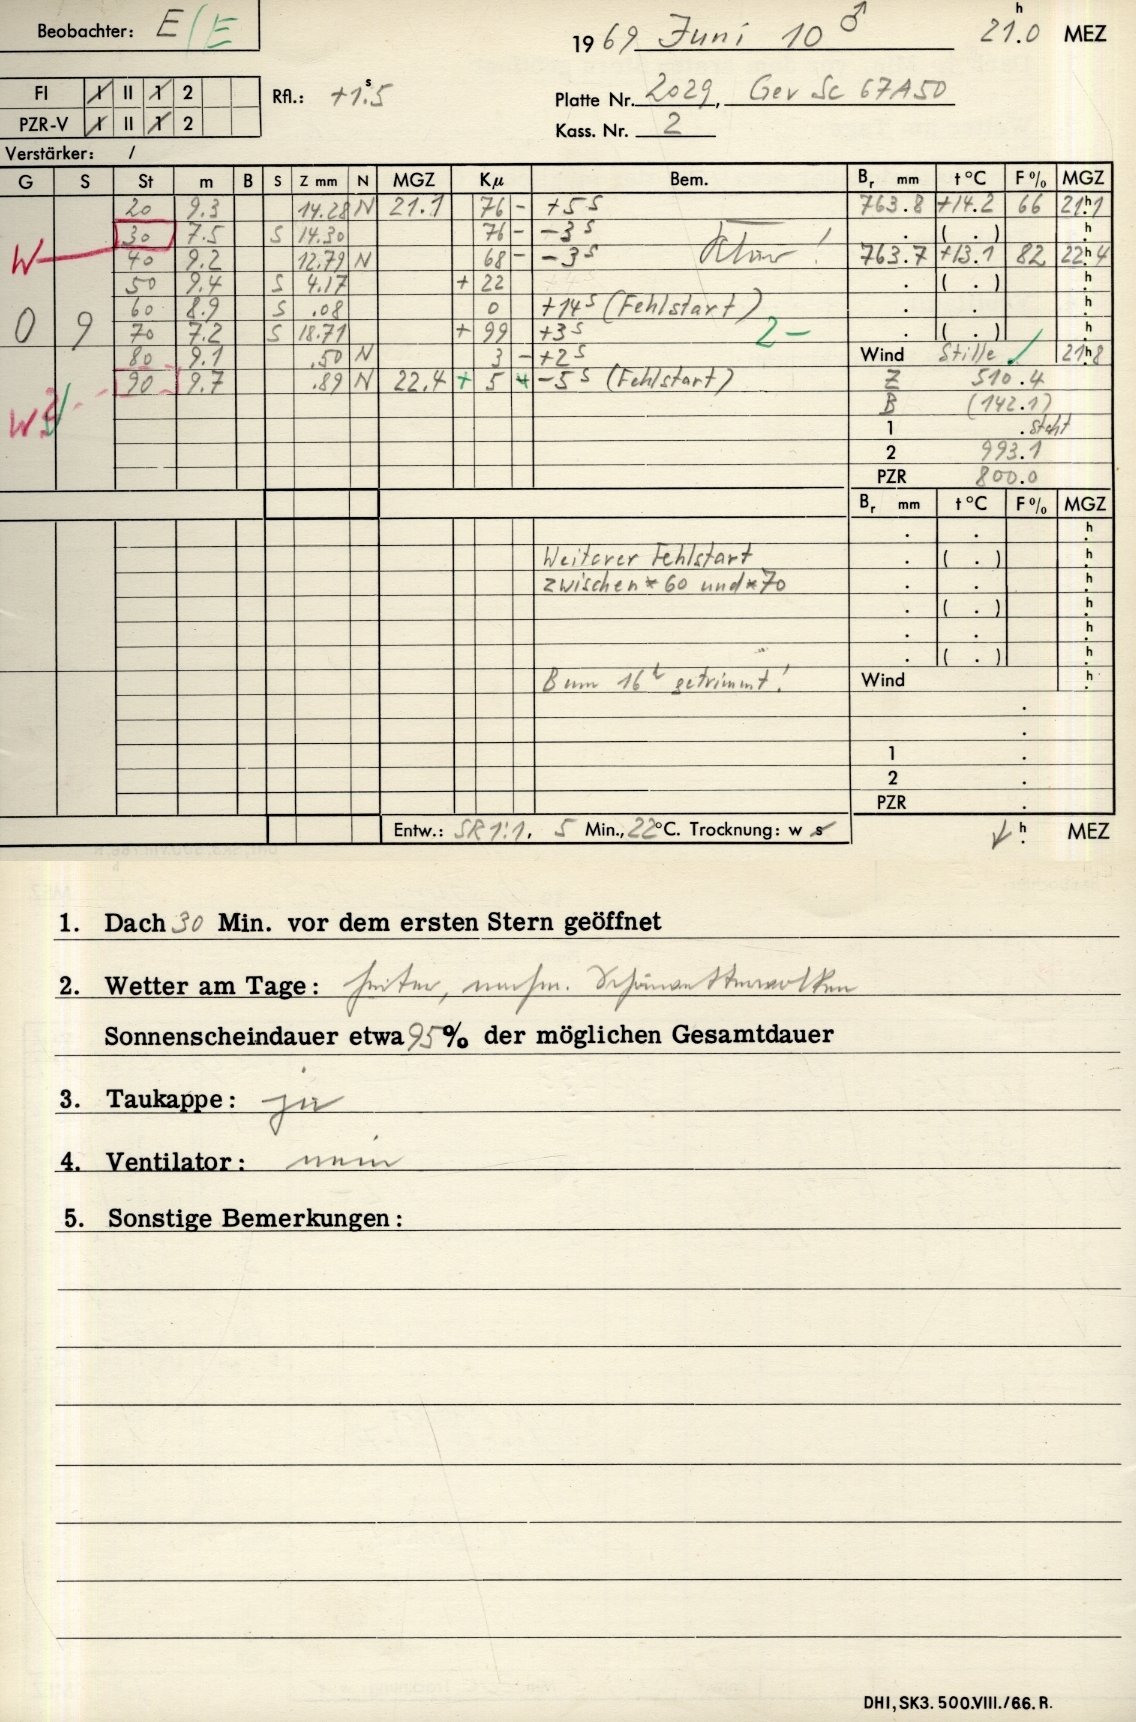 Beobachter: E/E
1969 Juni 10 ♂ 21h.0 MEZ
FI I II 1 2 Rfl.: +1s.5
Platte Nr. 2029, Gev Sc 67A50
PZR-V I II 1 2
Kass. Nr. 2
Verstärker: /
G S St m B S Z mm N MGZ Kμ Bem. Br mm t °C F % MGZ
20 9.3 14.28 N 21.1 76 - +5s 763.8 +14.2 66 21h1
W 30 7.5 S 14.30 76 - -3s . ( . ) h
40 9.2 12.79 N 68 - -3s Klar! 763.7 +13.1 82 22h4
50 9.4 S 4.17 + 22 . ( . ) h
0 9 60 8.9 S .08 0 +14s (Fehlstart) . . h
70 7.2 S 18.71 + 99 +3s 2- . ( . ) h
80 9.1 .50 N 3 - +2s Wind Stille ✓ 21h8
90 9.7 .89 N 22.4 + 5 -5s (Fehlstart) Z 510.4
W B (142.1)
1 . steht
2 993.1
PZR 800.0
Br mm t °C F % MGZ
. . h
Weiterer Fehlstart . ( . ) h
zwischen * 60 und * 70 . . h
. ( . ) h
. . h
. ( . ) h
B um 16h getrimmt! Wind h
.
.
1 .
2 .
PZR .
Entw.: SR 1:1, 5 Min., 22 °C. Trocknung: w s ↓ h. MEZ
1. Dach 30 Min. vor dem ersten Stern geöffnet
2. Wetter am Tage: heiter, nachm. Schönwetterwolken
Sonnenscheindauer etwa 95% der möglichen Gesamtdauer
3. Taukappe: ja
4. Ventilator: nein
5. Sonstige Bemerkungen:
DHI, SK3. 500.VIII./66. R.